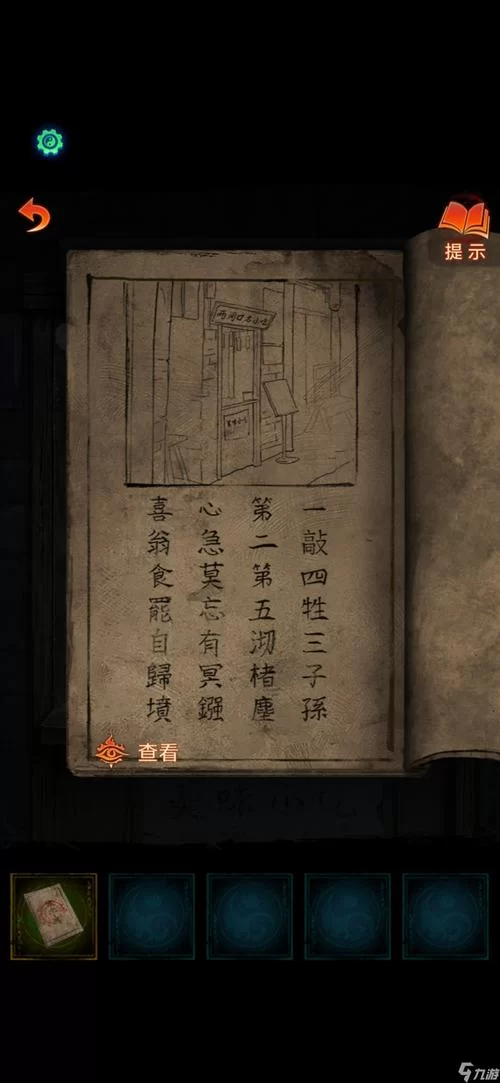 提示
两间口名小吃
一敲四牲三子孫
第二第五沏楮塵
心急莫忘有冥鏹
喜翁食罷自歸墳
查看
九游